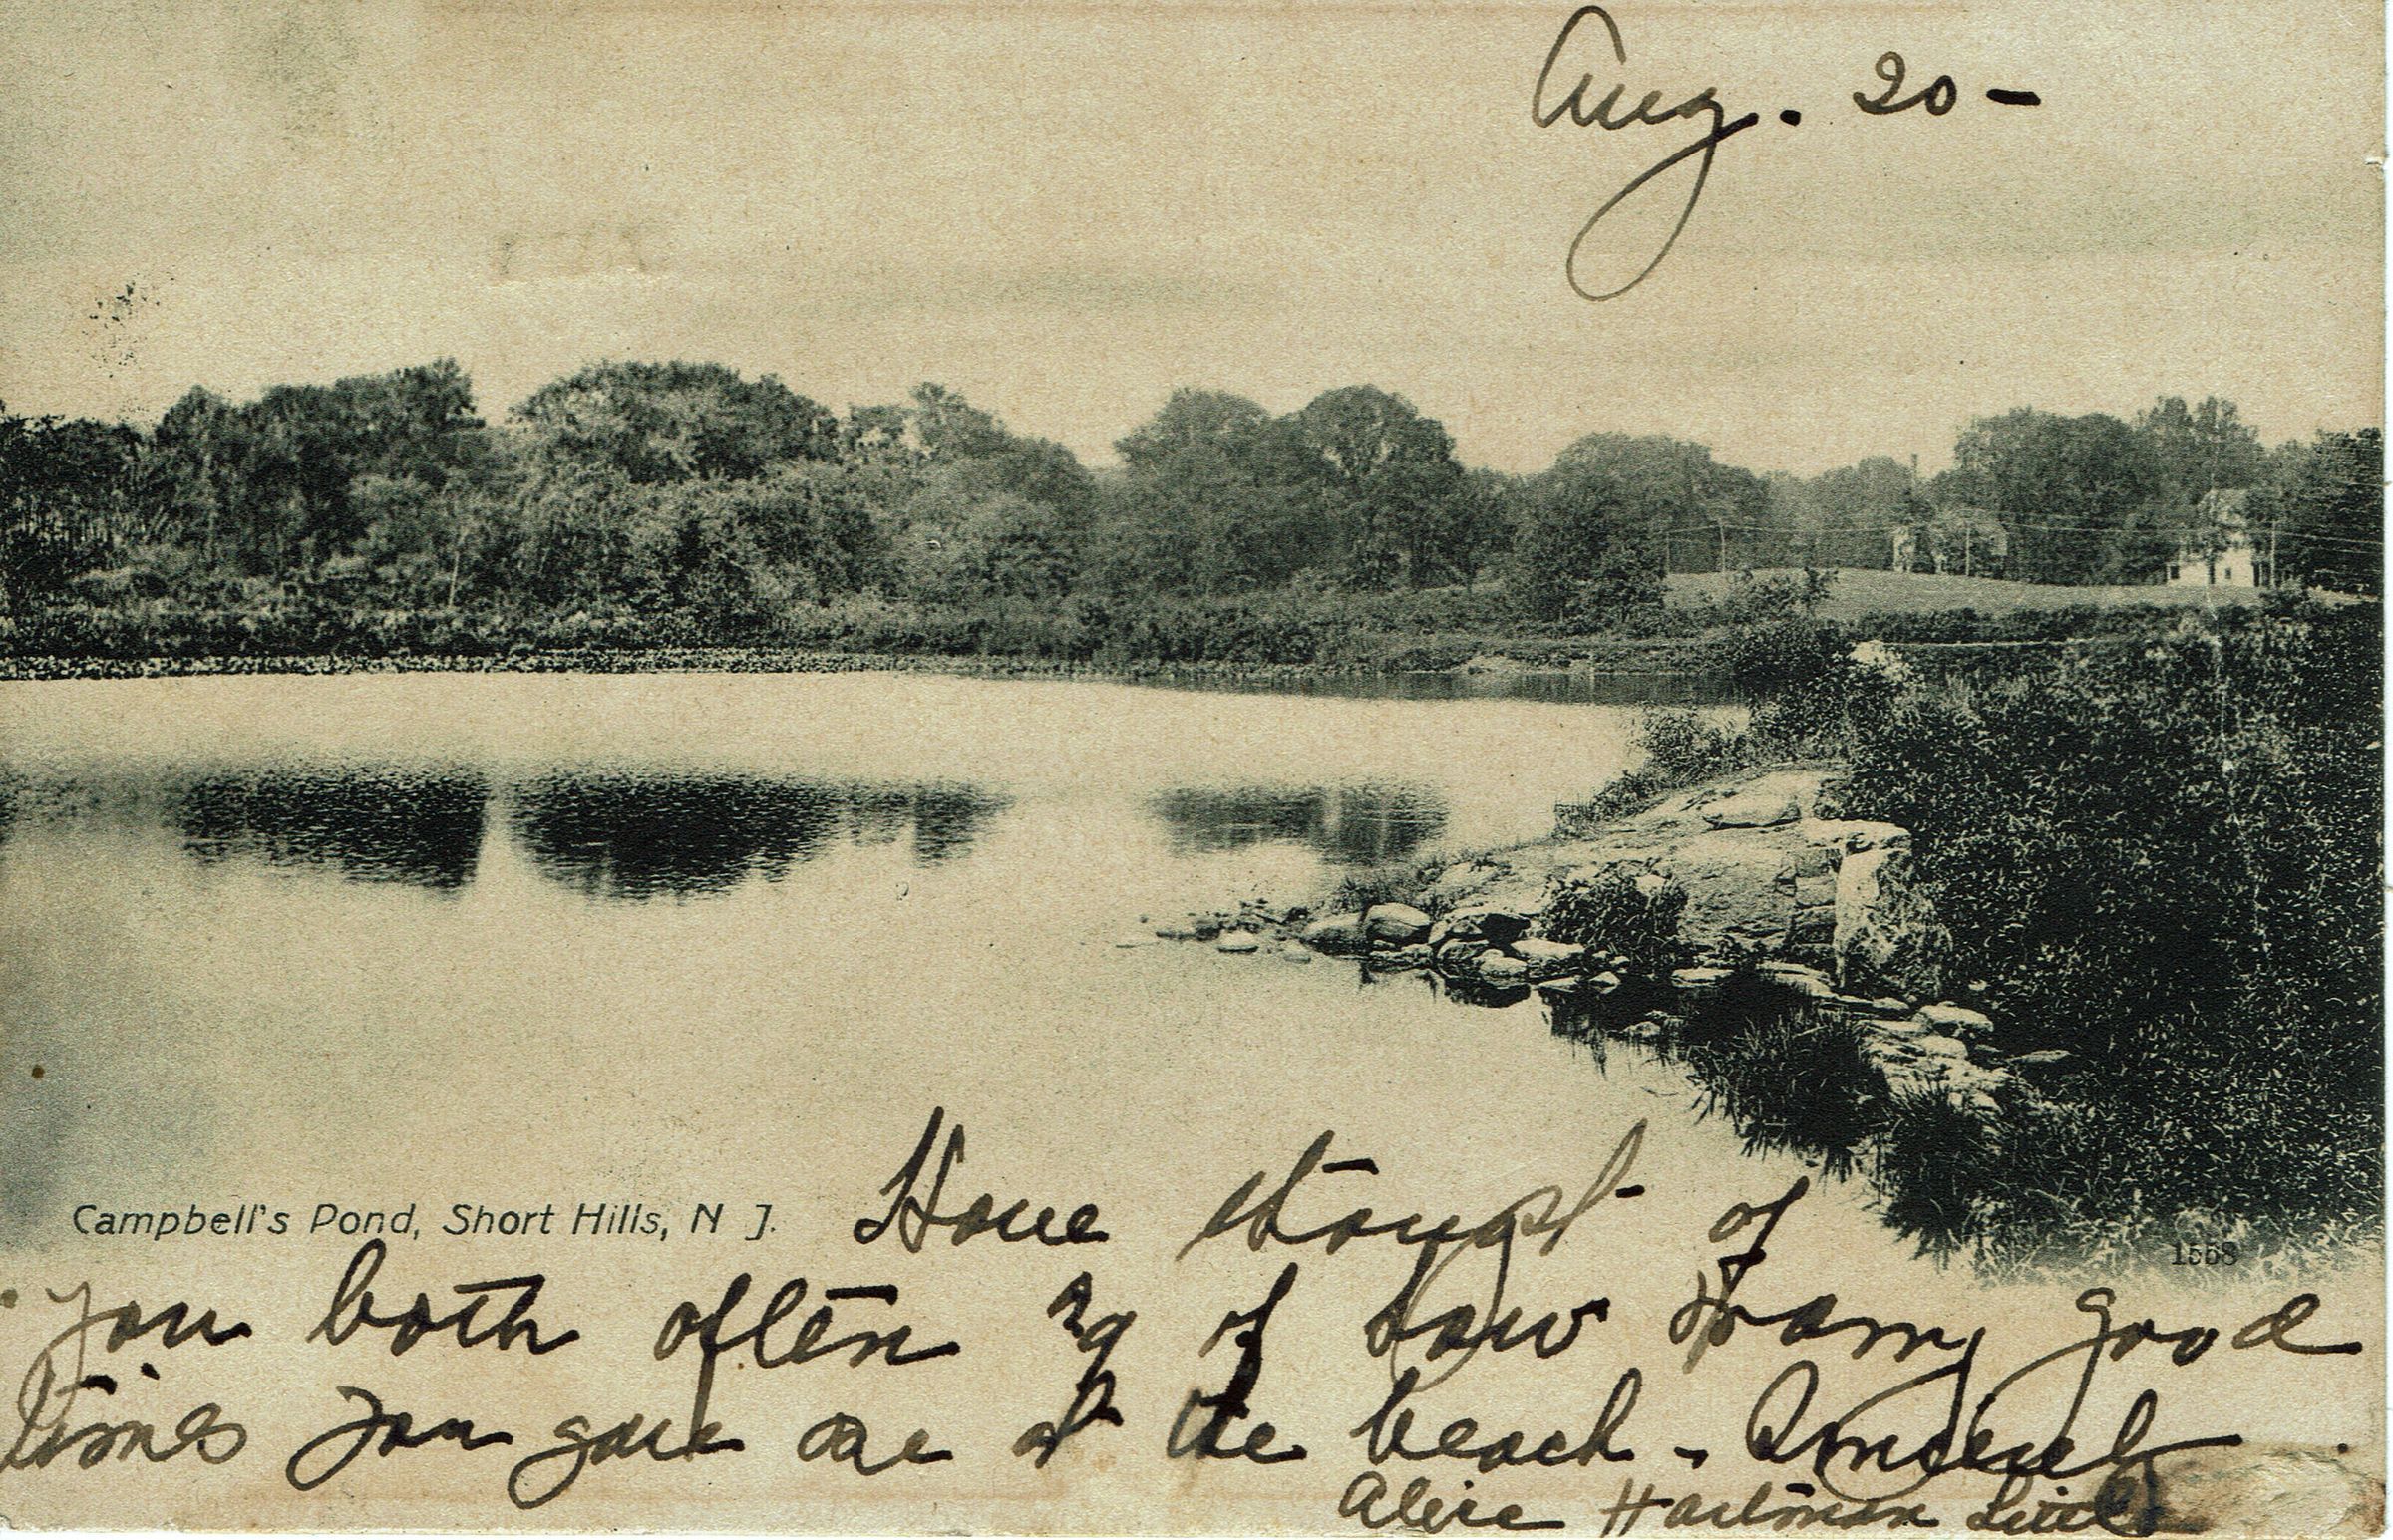 Aug. 20-
Campbell's Pond, Short Hills, N J.
Have thought of
1558
you both often & of how many good
times you gave me at the beach - Sincerely
Alice Hartman Little